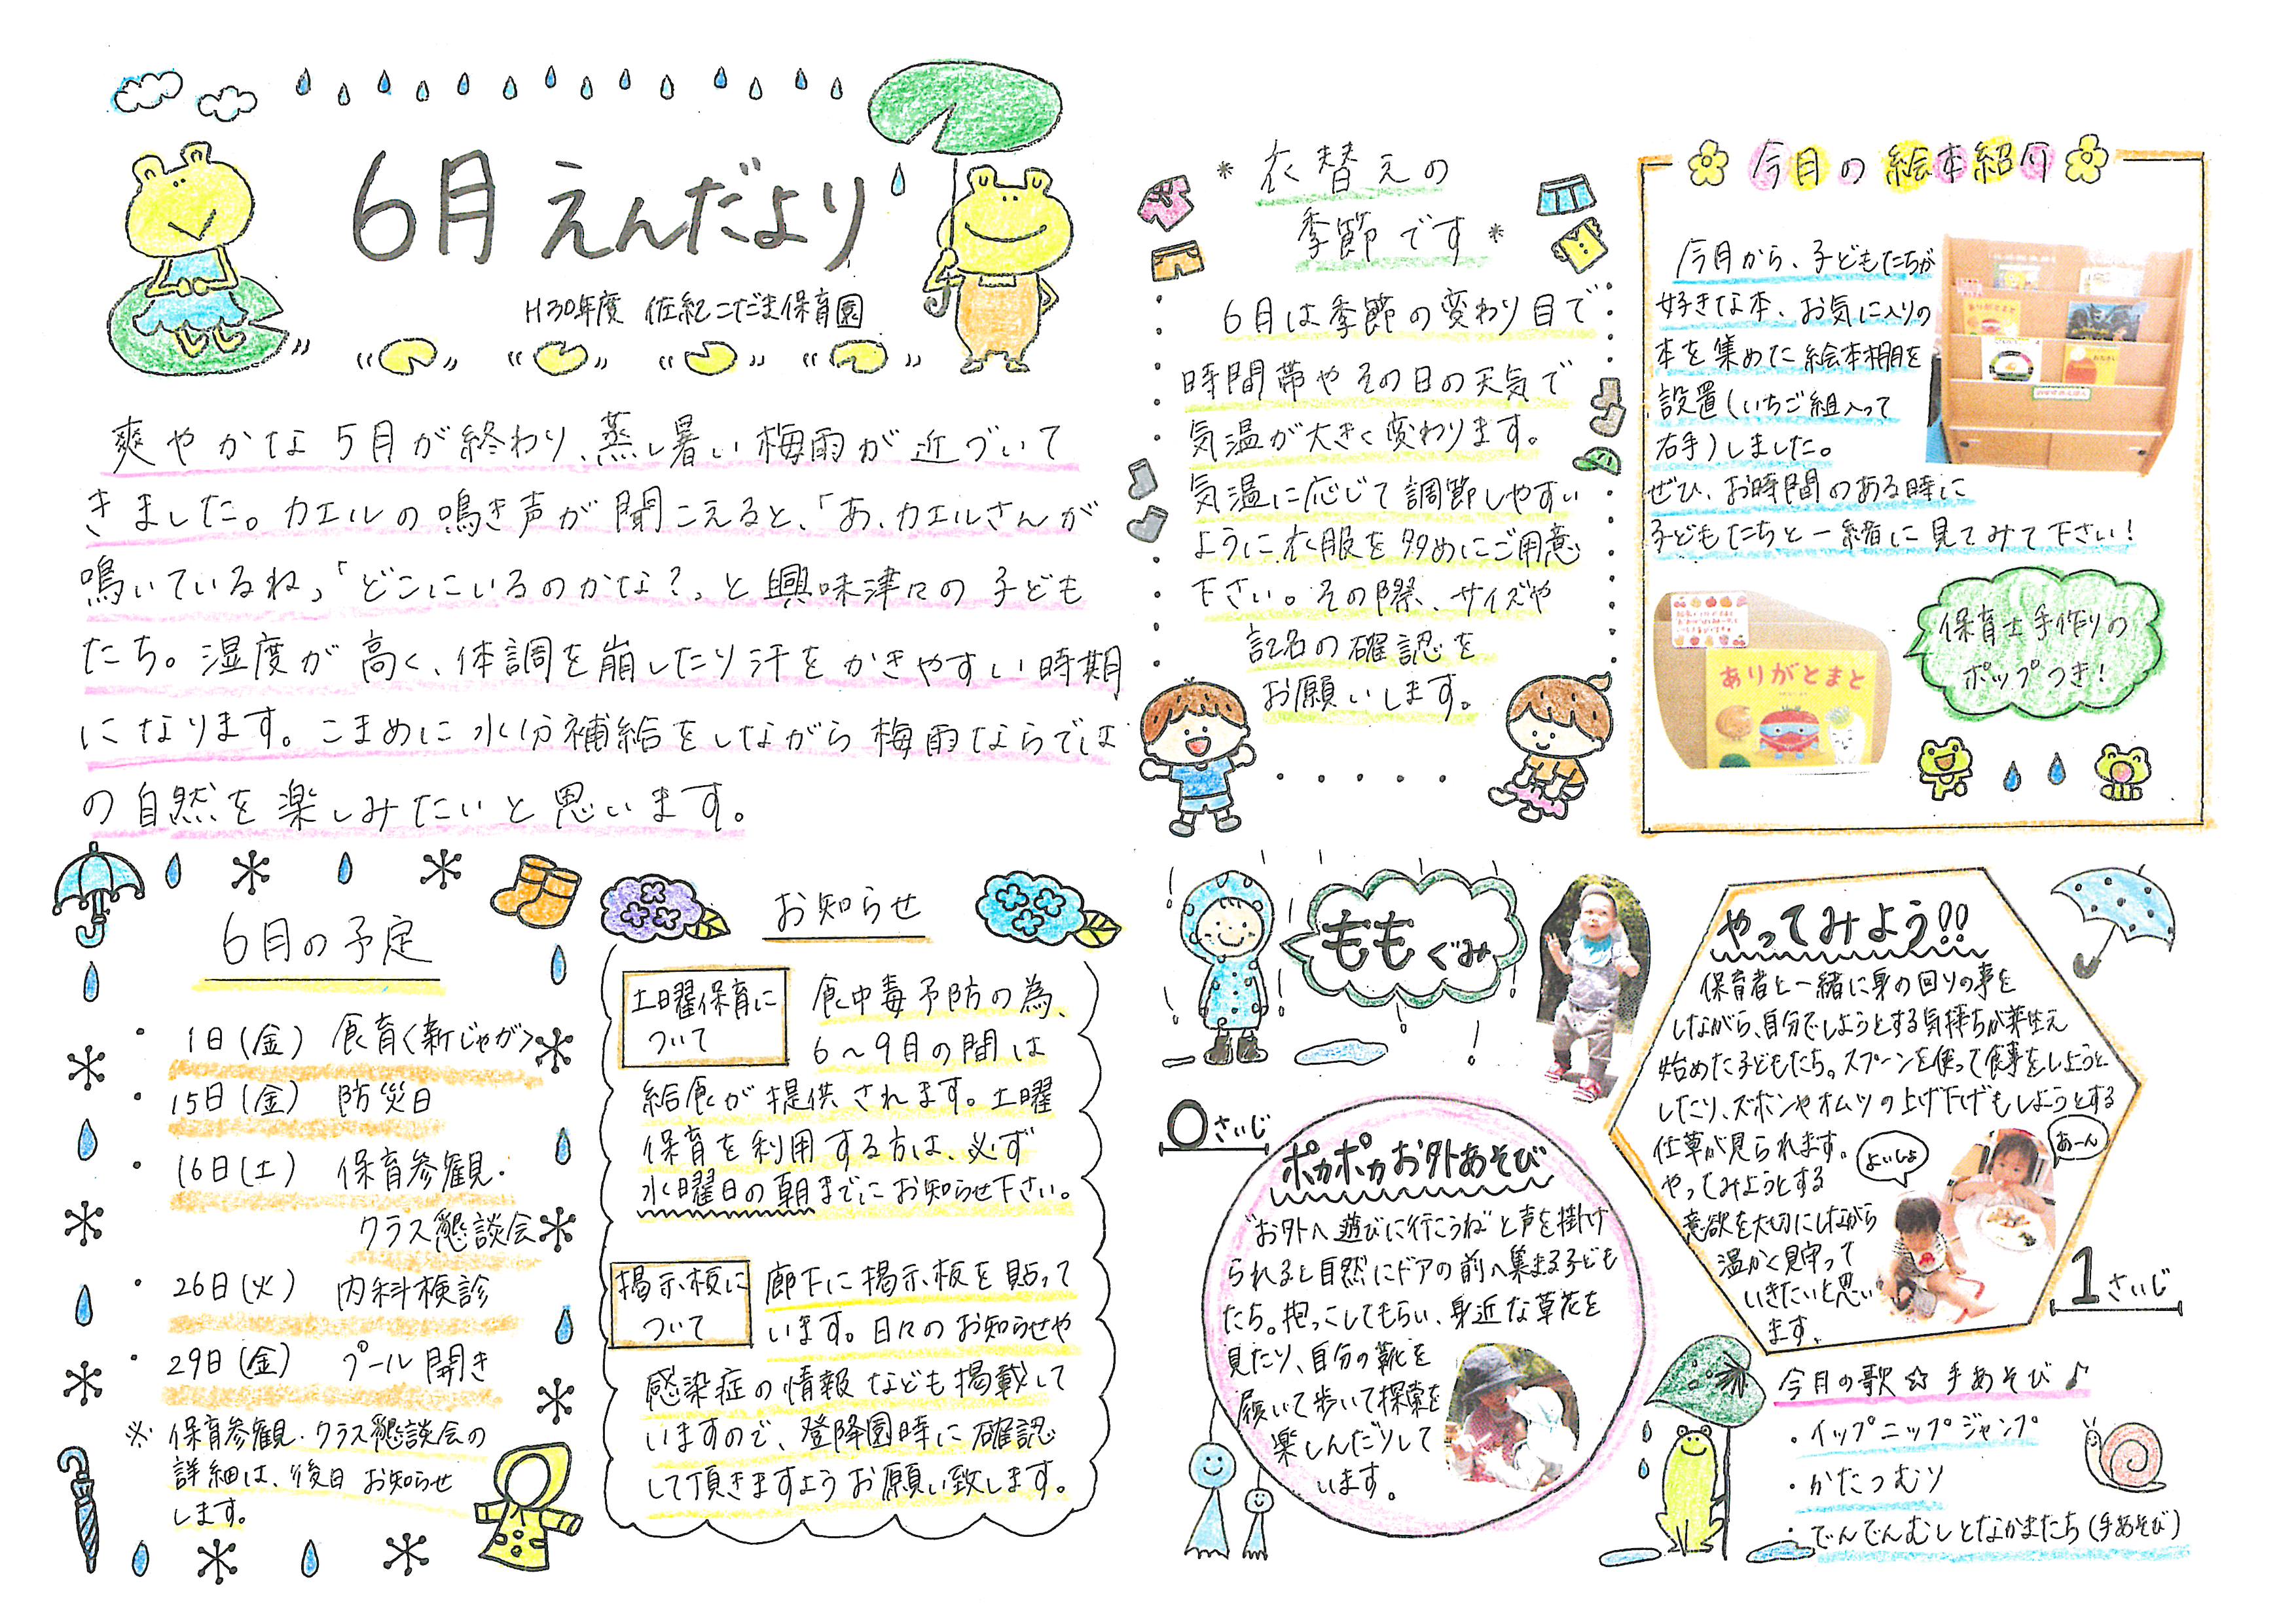 6月 えんだより
H30年度 佐紀こだま保育園
爽やかな5月が終わり、蒸し暑い梅雨が近づいて
きました。カエルの鳴き声が聞こえると、「あ、カエルさんが
鳴いているね」「どこにいるのかな?」と興味津々の子ども
たち。湿度が高く、体調を崩したり汗をかきやすい時期
になります。こまめに水分補給をしながら梅雨ならでは
の自然を楽しみたいと思います。
6月の予定
・1日(金) 食育<新じゃが>
・15日(金) 防災日
・16日(土) 保育参観・
クラス懇談会
・26日(火) 内科検診
・29日(金) プール開き
※保育参観・クラス懇談会の
詳細は、後日お知らせ
します。
お知らせ
土曜保育に
ついて
食中毒予防の為、
6〜9月の間は
給食が提供されます。土曜
保育を利用する方は、必ず
水曜日の朝までにお知らせ下さい。
掲示板に
ついて
廊下に掲示板を貼って
います。日々のお知らせや
感染症の情報なども掲載して
いますので、登降園時に確認
して頂きますようお願い致します。
*衣替えの
季節です*
6月は季節の変わり目で
時間帯やその日の天気で
気温が大きく変わります。
気温に応じて調節しやすい
ように衣服を多めにご用意
下さい。その際、サイズや
記名の確認を
お願いします。
今月の絵本紹介
今月から、子どもたちが
好きな本、お気に入りの
本を集めた絵本棚を
設置(いちご組入って
右手)しました。
ぜひ、お時間のある時に
子どもたちと一緒に見てみて下さい!
ありがとまと
保育士手作りの
ポップつき!
ももぐみ
0さいじ
ポカポカお外あそび
"お外へ遊びに行こうね"と声を掛け
られると自然にドアの前へ集まる子ども
たち。抱っこしてもらい、身近な草花を
見たり、自分の靴を
履いて歩いて探索を
楽しんだりして
います。
やってみよう!!
保育者と一緒に身の回りの事を
しながら、自分でしようとする気持ちが芽生え
始めた子どもたち。スプーンを使って食事をしようと
したり、ズボンやオムツの上げ下げもしようとする
仕草が見られます。
やってみようとする
意欲を大切にしながら
温かく見守って
いきたいと思い
ます。
よいしょ
あーん
1さいじ
今月の歌☆手あそび♪
・イップニップジャンプ
・かたつむり
・でんでんむしとなかまたち(手あそび)